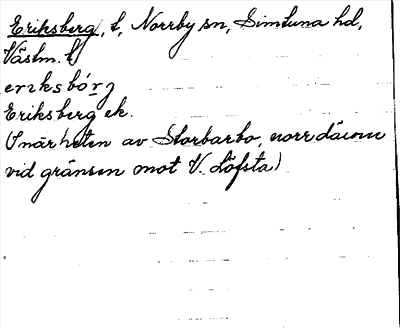 Eriksberg, t, Norrby sn, Simtuna hd,
Västm. l
eriksbórj
Eriksberg ek.
(I närheten av Storbarbo, norr därom
vid gränsen mot V. Löfsta)